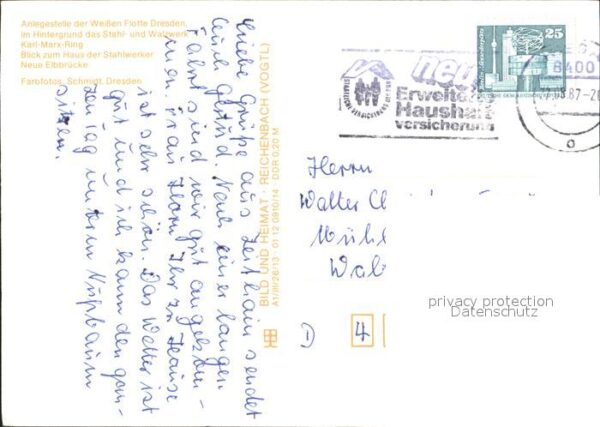 Anlegestelle der Weißen Flotte Dresden,
im Hintergrund das Stahl- und Walzwerk
Karl-Marx-Ring
Blick zum Haus der Stahlwerker
Neue Elbbrücke
Farbfotos: Schmidt, Dresden
Liebe Grüße aus Zeithain sendet
Euch Gertrud. Nach einer langen
Fahrt sind wir gut angekom-
men. Frau Ihr zu Hause
ist sehr schön. Das Wetter ist
gut und ich kann den gan-
zen Tag unterm Nußbaum
sitzen.
BILD UND HEIMAT · REICHENBACH (VOGTL)
A1/III/26/13 · 01 12 0910/14 DDR 0,20 M
neu
Erweiterte
Haushalt
versicherung
8400
87-20
25
Herrn
Walter
Mühl
Wal
D 4
privacy protection
Datenschutz